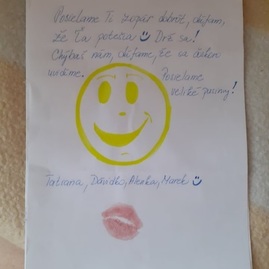 Posielame Ti zopár dobrôt, dúfam,
že Ťa potešia Drž sa!
Chýbaš nám, dúfame, že sa čoskoro
uvidíme. Posielame
veľké pusiny!
Tatiana, Davidko, Alenka, Marek